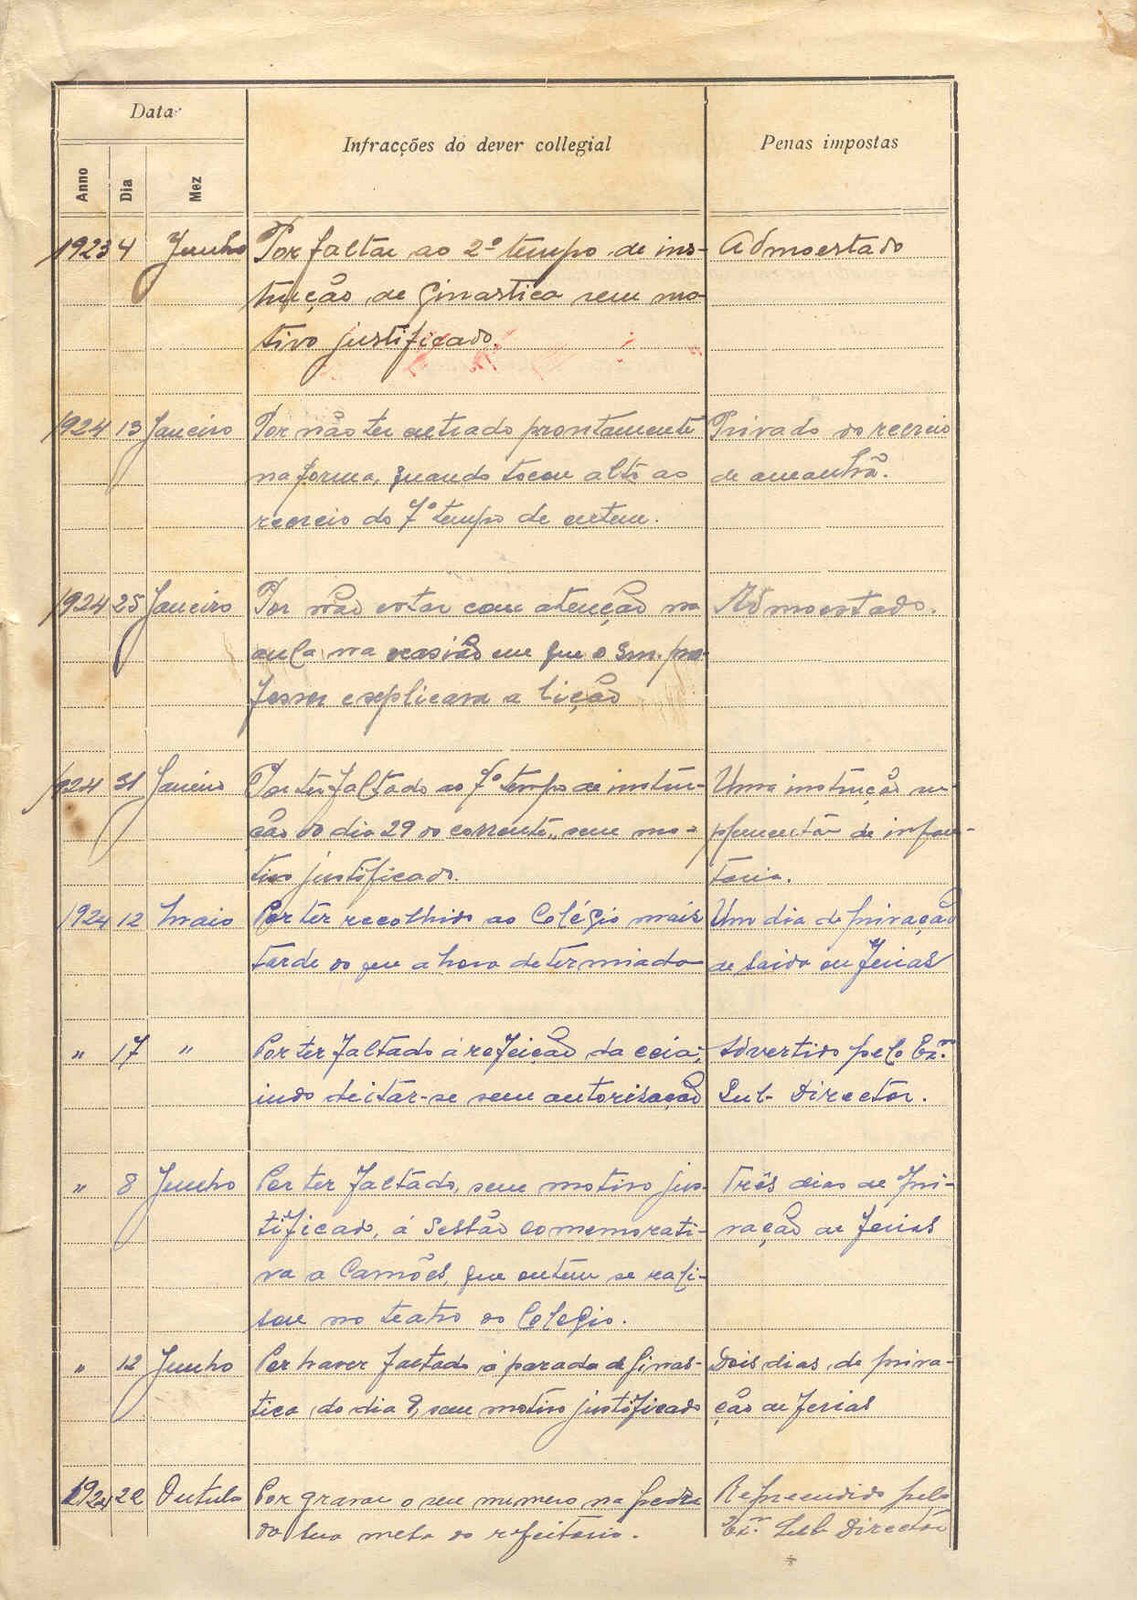 Data
Infracções do dever collegial
Penas impostas
Anno
Dia
Mez
1923 4 Junho Por faltar ao 2º tempo de ins- Admoestado
trução de Ginastica sem mo-
tivo justificado.
1924 13 Janeiro Por não ter entrado prontamente Privado do recreio
na forma, quando tocou alto ao de amanhã.
recreio do 7º tempo de ontem.
1924 25 Janeiro Por não estar com atenção na Admoestado.
aula na ocasião em que o Snr. pro-
fessor explicava a lição
1924 31 Janeiro Por ter faltado ao 7º tempo de instru- Uma instrução su-
ção do dia 29 do corrente, sem mo- plementar de infan-
tivo justificado. taria.
1924 12 Maio Por ter recolhido ao Colégio mais Um dia de privação
tarde do que a hora determinada de saida ou ferias
" 17 " Por ter faltado á refeição da ceia, Advertido pelo Exmº
indo deitar-se sem autorisação Sub-Director.
" 8 Junho Por ter faltado, sem motivo jus- Três dias de pri-
tificado, á sessão comemorati- vação de ferias
va a Camões, que ontem se rali-
sou no teatro do Colegio.
" 12 Junho Por haver faltado á parada de Ginas- Dois dias de priva-
tica, do dia 8, sem motivo justificado ção de ferias
1924 22 Outubº Por gravar o seu numero na pedra Repreendido pelo
da sua meza do refeitorio. Exmº Sub Director